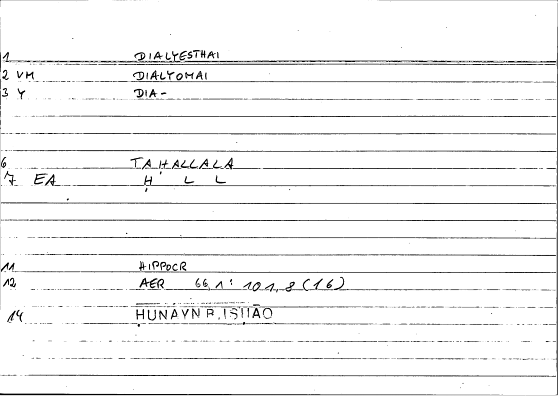 1 DIALYESTHAI
2 VM DIALYOMAI
3 Y DIA-
6 TAḤALLALA
7 EA Ḥ L L
11 HIPPOCR
12 AER 66,1: 101,8 (16)
14 ḤUNAYN B. ISḤĀQ